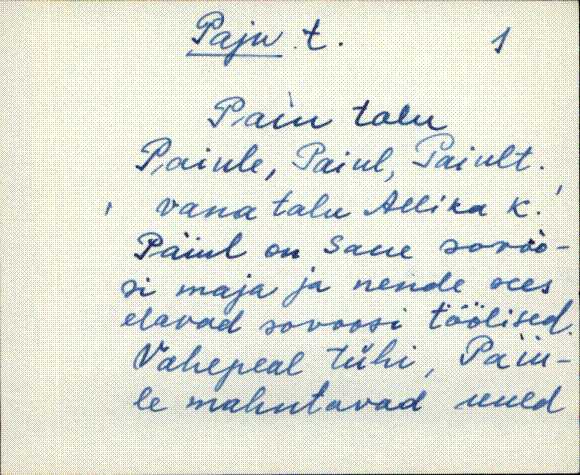 Paju t. 1
Paiu talu
Paiule, Paiul, Paiult.
' vana talu Allika k.'
Paiul on Saue sovoo-
si maja ja nende sees
elavad sovoosi töölised.
Vahepeal tühi, Paiu-
le mahutavad uued